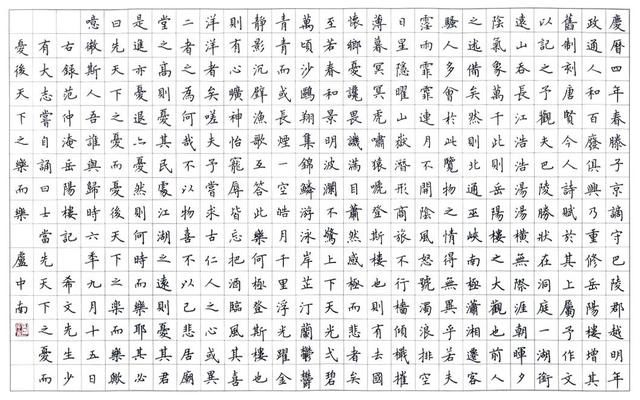 慶曆四年春滕子京謫守巴陵郡越明年
政通人和百廢俱興乃重修岳陽樓增其
舊制刻唐賢今人詩賦於其上屬予作文
以記之予觀夫巴陵勝狀在洞庭一湖銜
遠山吞長江浩浩湯湯橫無際涯朝暉夕
陰氣象萬千此則岳陽樓之大觀也前人
之述備矣然則北通巫峽南極瀟湘遷客
騷人多會於此覽物之情得無異乎若夫
霪雨霏霏連月不開陰風怒號濁浪排空
日星隱曜山嶽潛形商旅不行檣傾檝摧
薄暮冥冥虎嘯猿啼登斯樓也則有去國
懷鄉憂讒畏譏滿目蕭然感極而悲者矣
至若春和景明波瀾不驚上下天光一碧
萬頃沙鷗翔集錦鱗游泳岸芷汀蘭鬱鬱
青青而或長煙一空皓月千里浮光躍金
靜影沉璧漁歌互答此樂何極登斯樓也
則有心曠神怡寵辱皆忘把酒臨風其喜
洋洋者矣嗟夫予嘗求古仁人之心或異
二者之為何哉不以物喜不以己悲居廟
堂之高則憂其民處江湖之遠則憂其君
是進亦憂退亦憂然則何時而樂耶其必
曰先天下之憂而憂後天下之樂而樂歟
噫微斯人吾誰與歸時六年九月十五日
右錄范仲淹岳陽樓記 希文先生少
有大志嘗自誦曰士當先天下之憂而
憂後天下之樂而樂 盧中南